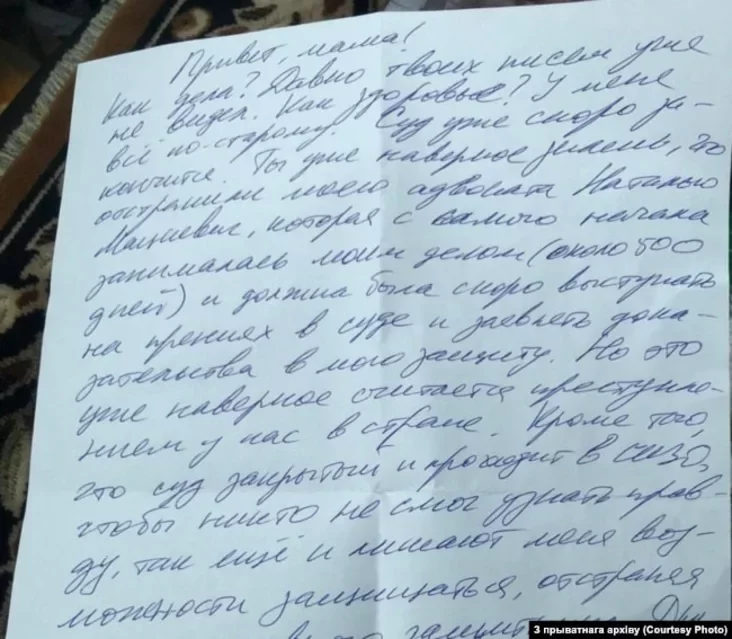 Привет, мама!
Как дела? Давно твоих писем уже
не видел. Как здоровье? У меня
всё по-старому. Суд уже скоро за-
кончится. Ты уже наверное знаешь, что
отстранили моего адвоката Наталью
Мацкевич, которая с самого начала
занималась моим делом (около 500
дней) и должна была скоро выступать
на прениях в суде и заявлять дока-
зательства в мою защиту. Но это
уже наверное считается преступле-
нием у нас в стране. Кроме того,
что суд закрытый и проходит в СИЗО,
чтобы никто не смог узнать прав-
ду, так ещё и лишают меня воз-
можности защищаться, отстраняя
З прыватнага архіву (Courtesy Photo)